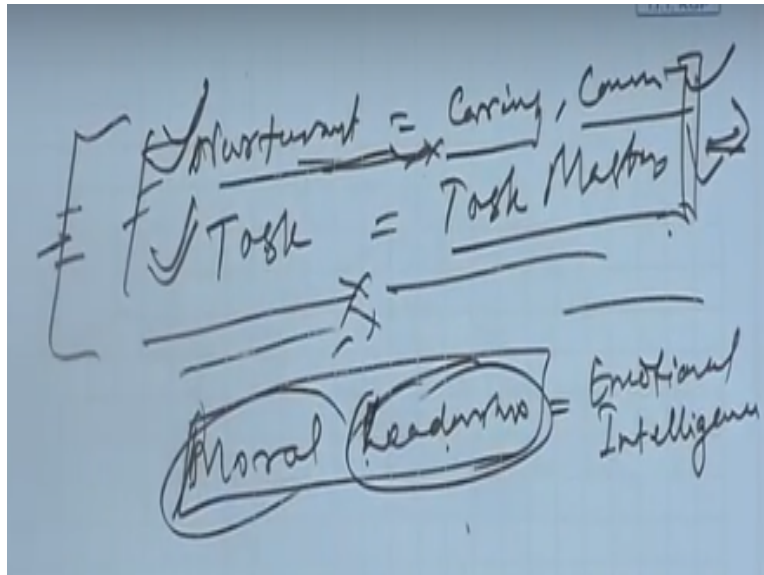 Nurturant = Caring, Comm
Task = Task Master
Moral Leadership = Emotional Intelligence